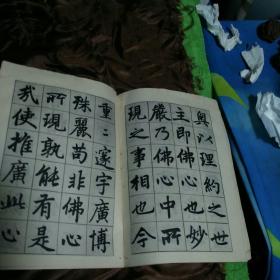 奧以理約之世
主即佛心也妙
嚴乃佛心中所
現之事相也今
重二邃宇廣博
殊麗苟非佛心
所現孰能有是
我使推廣此心